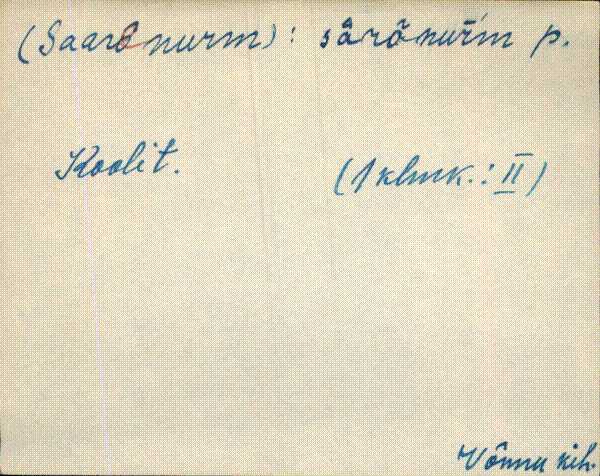 (Saarõnurm): sārõnuŕm p.
Koolit. (1 klmk.: II)
Võnnu kih.